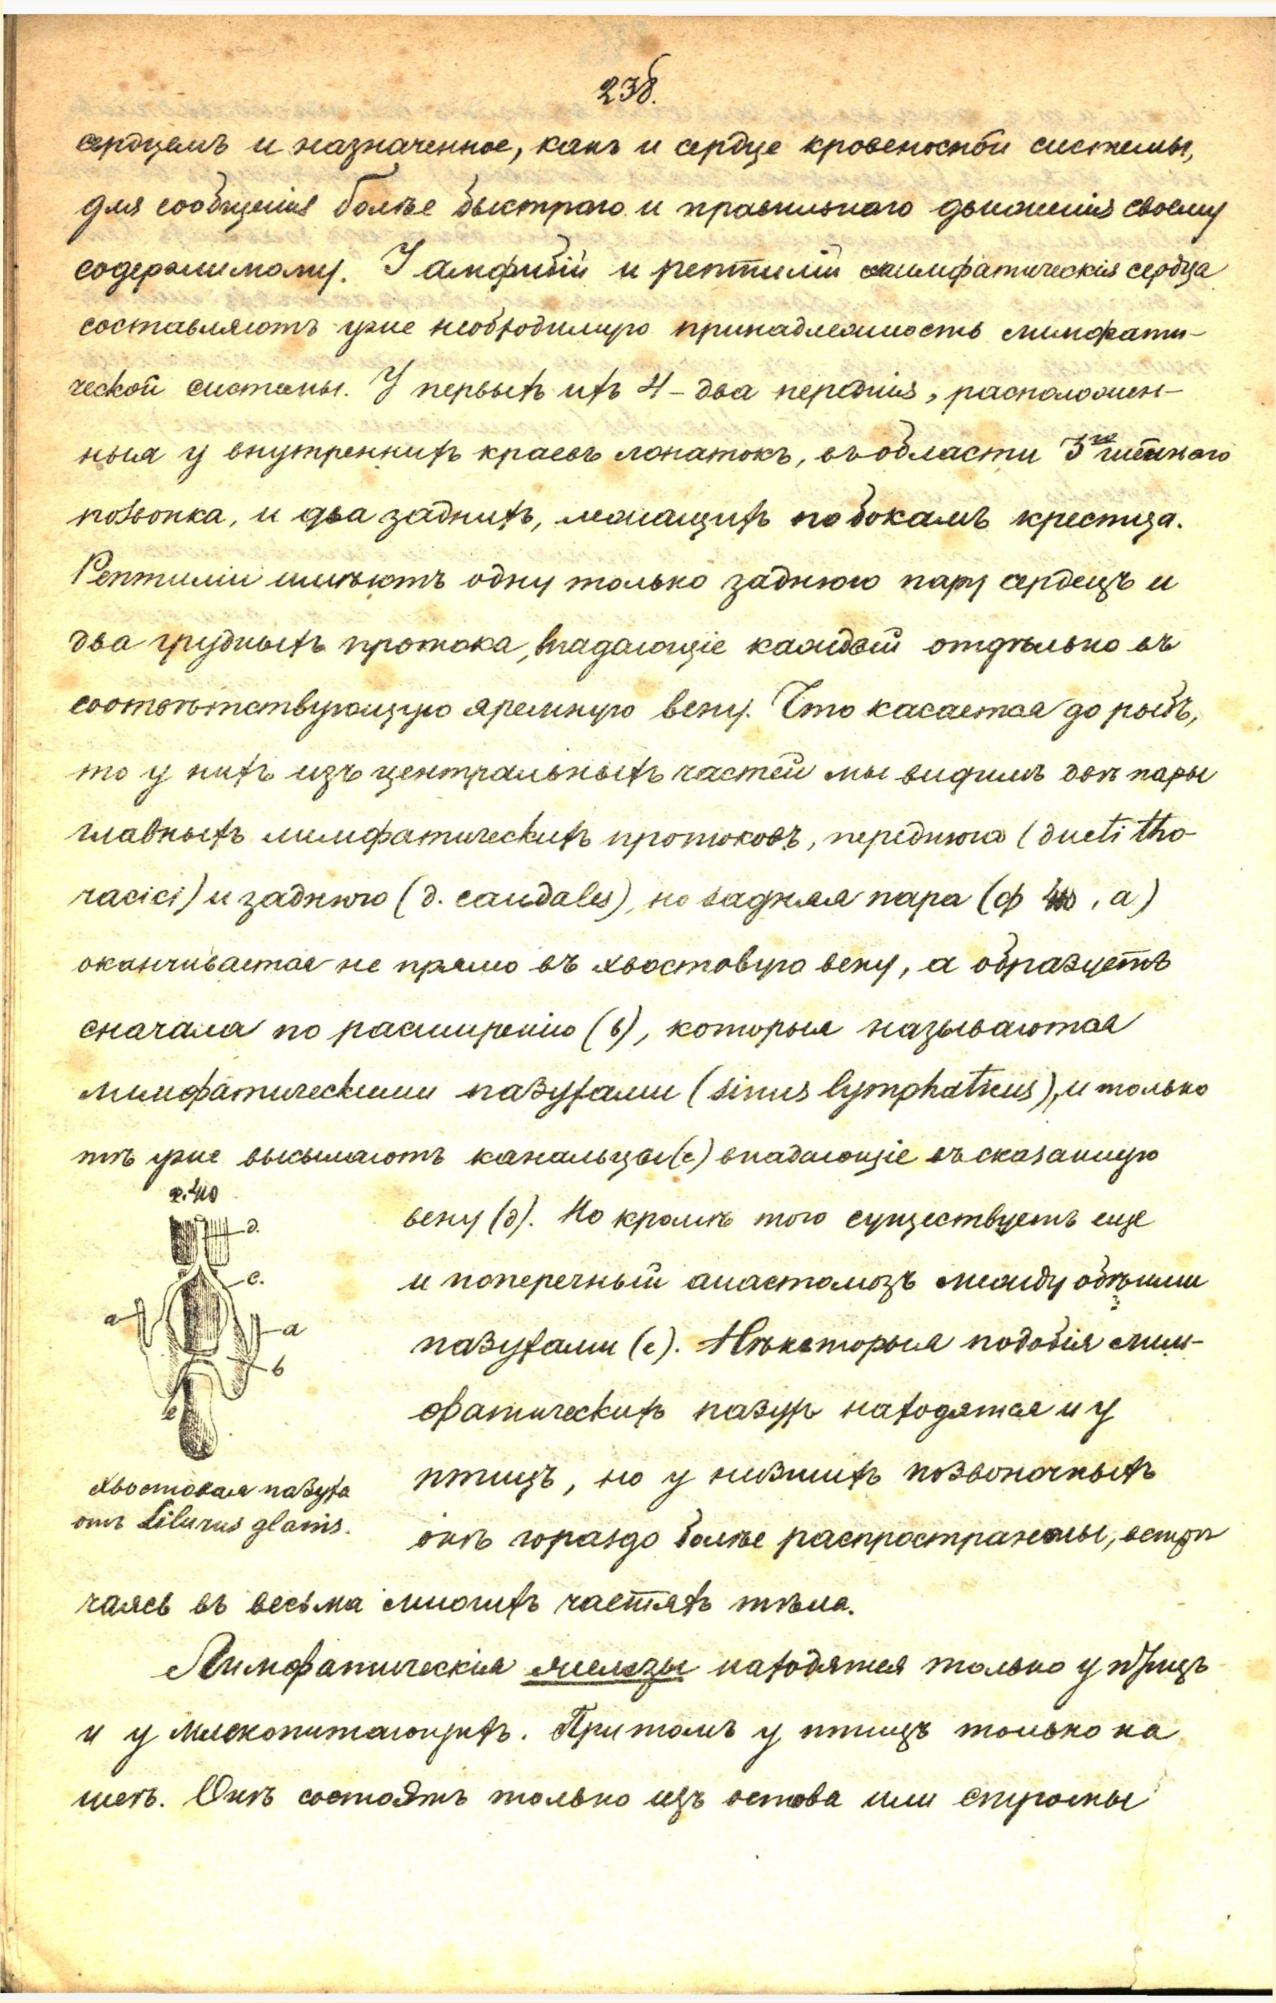 238.
сердцемъ и назначенное, какъ и сердце кровеносной системы,
для сообщенія болѣе быстраго и правильнаго движенія своему
содержимому. У амфибій и рептилій лимфатическія сердца
составляютъ уже необходимую принадлежность лимфати-
ческой системы. У первыхъ ихъ 4 – два переднія, расположен-
ныя у внутреннихъ краевъ лопатокъ, въ области 3го шейнаго
позвонка, и два заднихъ, лежащихъ по бокамъ крестца.
Рептиліи имѣютъ одну только заднюю пару сердецъ и
два грудныхъ протока, впадающіе каждый отдѣльно въ
соотвѣтствующую яремную вену. Что касается до рыбъ,
то у нихъ изъ центральныхъ частей мы видимъ двѣ пары
главныхъ лимфатическихъ протоковъ, переднюю (ducti tho-
racici) и заднюю (d. caudales), но задняя пара (ф 40, a)
оканчивается не прямо въ хвостовую вену, а образуетъ
сначала по расширенію (b), которыя называются
лимфатическими пазухами (sinus lymphaticus), и только
тѣ уже высылаютъ канальцы (c) впадающіе въ сказанную
ф. 40
вену (d). Но кромѣ того существуетъ еще
и поперечный анастомозъ между обѣими
пазухами (e). Нѣкоторыя подобія лим-
фатическихъ пазухъ находятся и у
птицъ, но у низшихъ позвоночныхъ
онѣ гораздо болѣе распространены, встрѣ
чаясь въ весьма многихъ частяхъ тѣла.
d.
c.
a
a
b
e
хвостовая пазуха
отъ Silurus glanis.
Лимфатическія железы находятся только у птицъ
и у млекопитающихъ. Притомъ у птицъ только на
шеѣ. Онѣ состоятъ только изъ остова или стромы